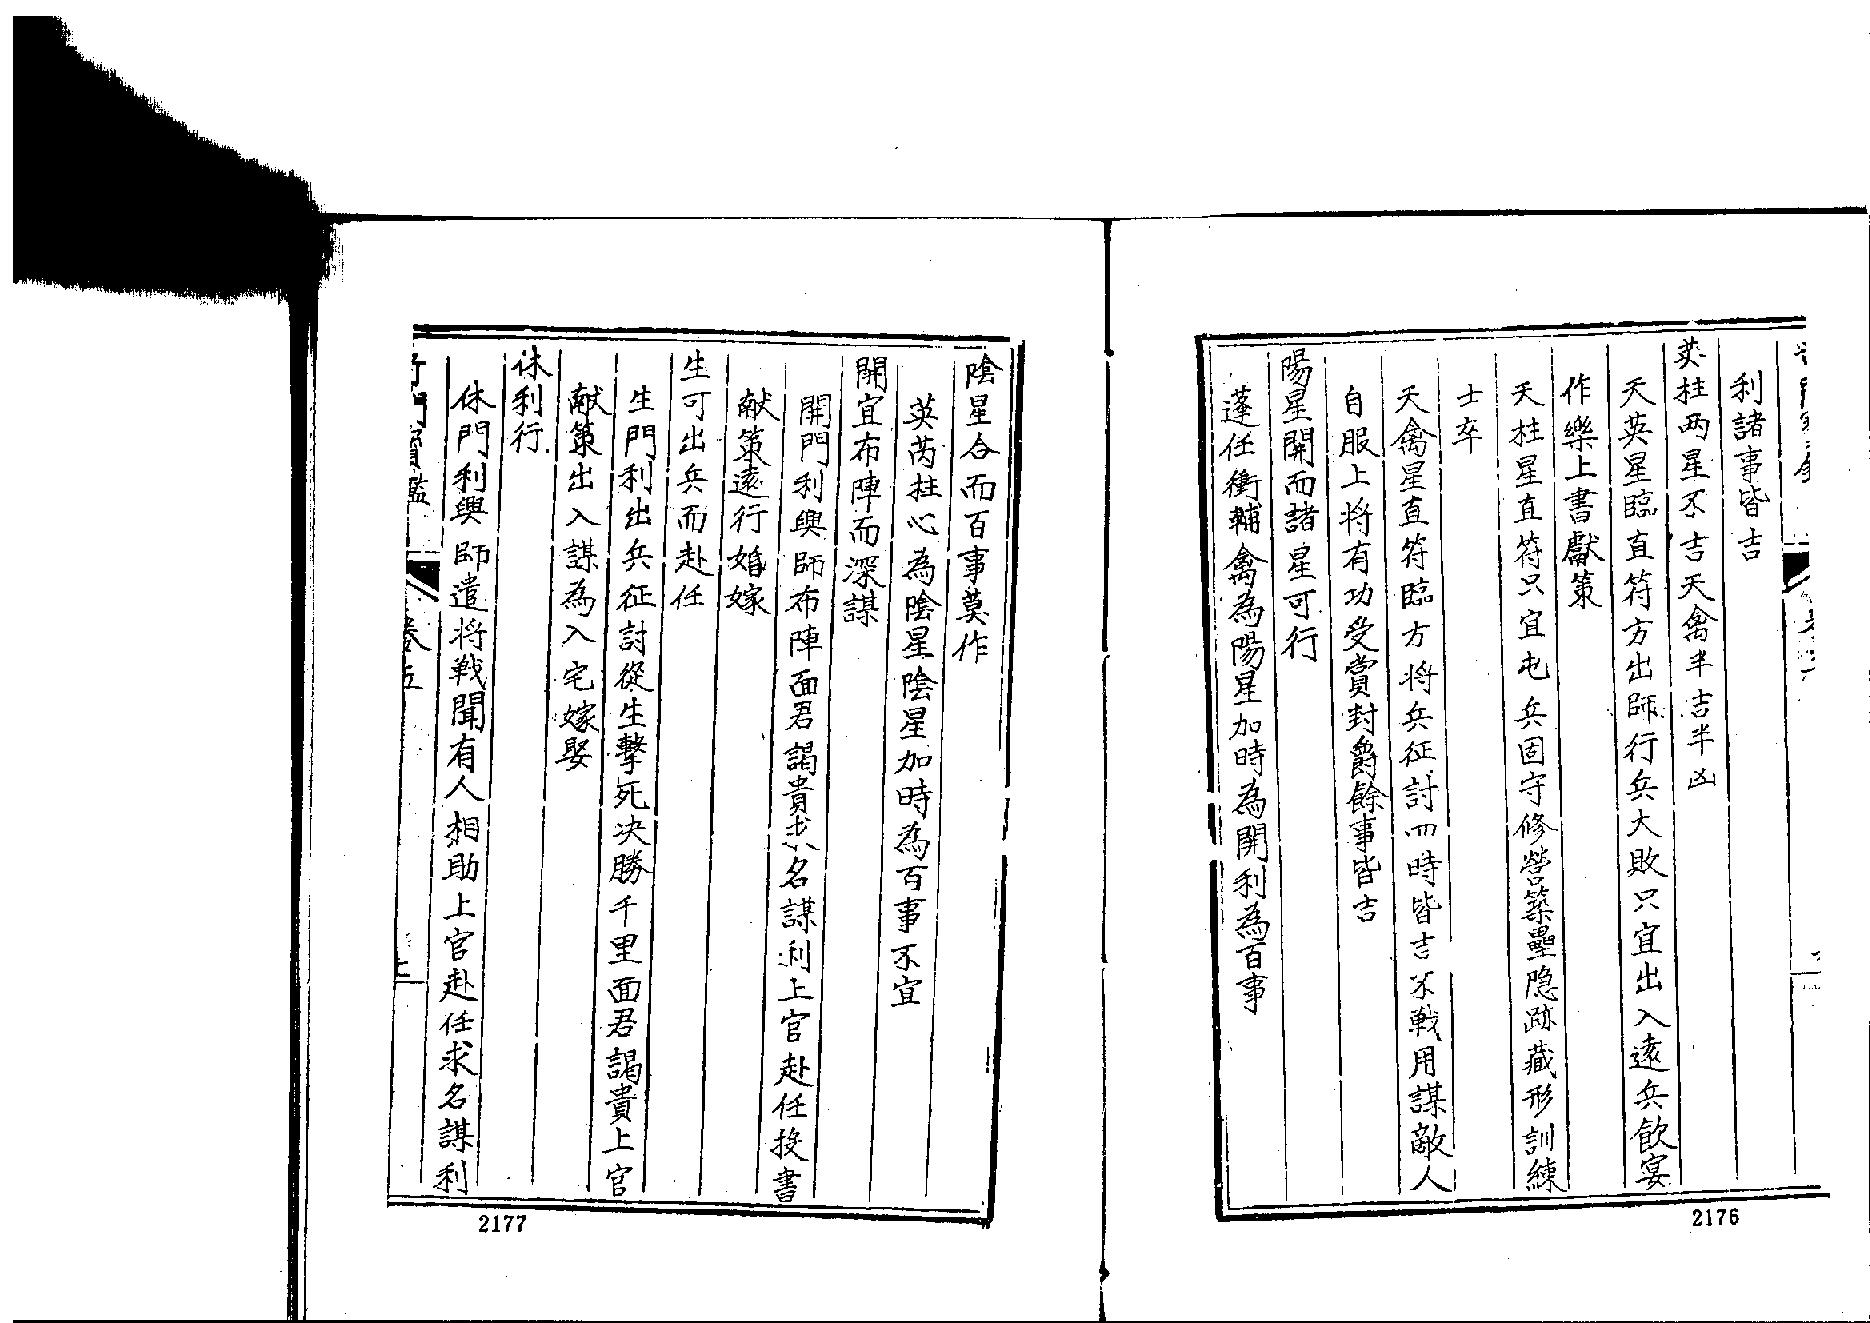 利諸事皆吉
英柱两星不吉天禽半吉半凶
天英星臨直符方出師行兵大敗只宜出入遠兵飲宴
作樂上書獻策
天柱星直符只宜屯兵固守修營築壘隐跡藏形訓練
士卒
天禽星直符臨方将兵征討四時皆吉不戰用謀敵人
自服上将有功受賞封爵餘事皆吉
陽星開而諸星可行
蓬任衝輔禽為陽星加時為開利為百事
2176
陰星合而百事莫作
英芮柱心為陰星陰星加時為百事不宜
開宜布陣而深謀
開門利興師布陣面君謁貴求名謀利上官赴任投書
献策遠行婚嫁
生可出兵而赴任
生門利出兵征討從生擊死决勝千里面君謁貴上官
献策出入謀為入宅嫁娶
休利行
休門利興師遣将戰聞有人相助上官赴任求名謀利
門寶鑑
卷五
2177